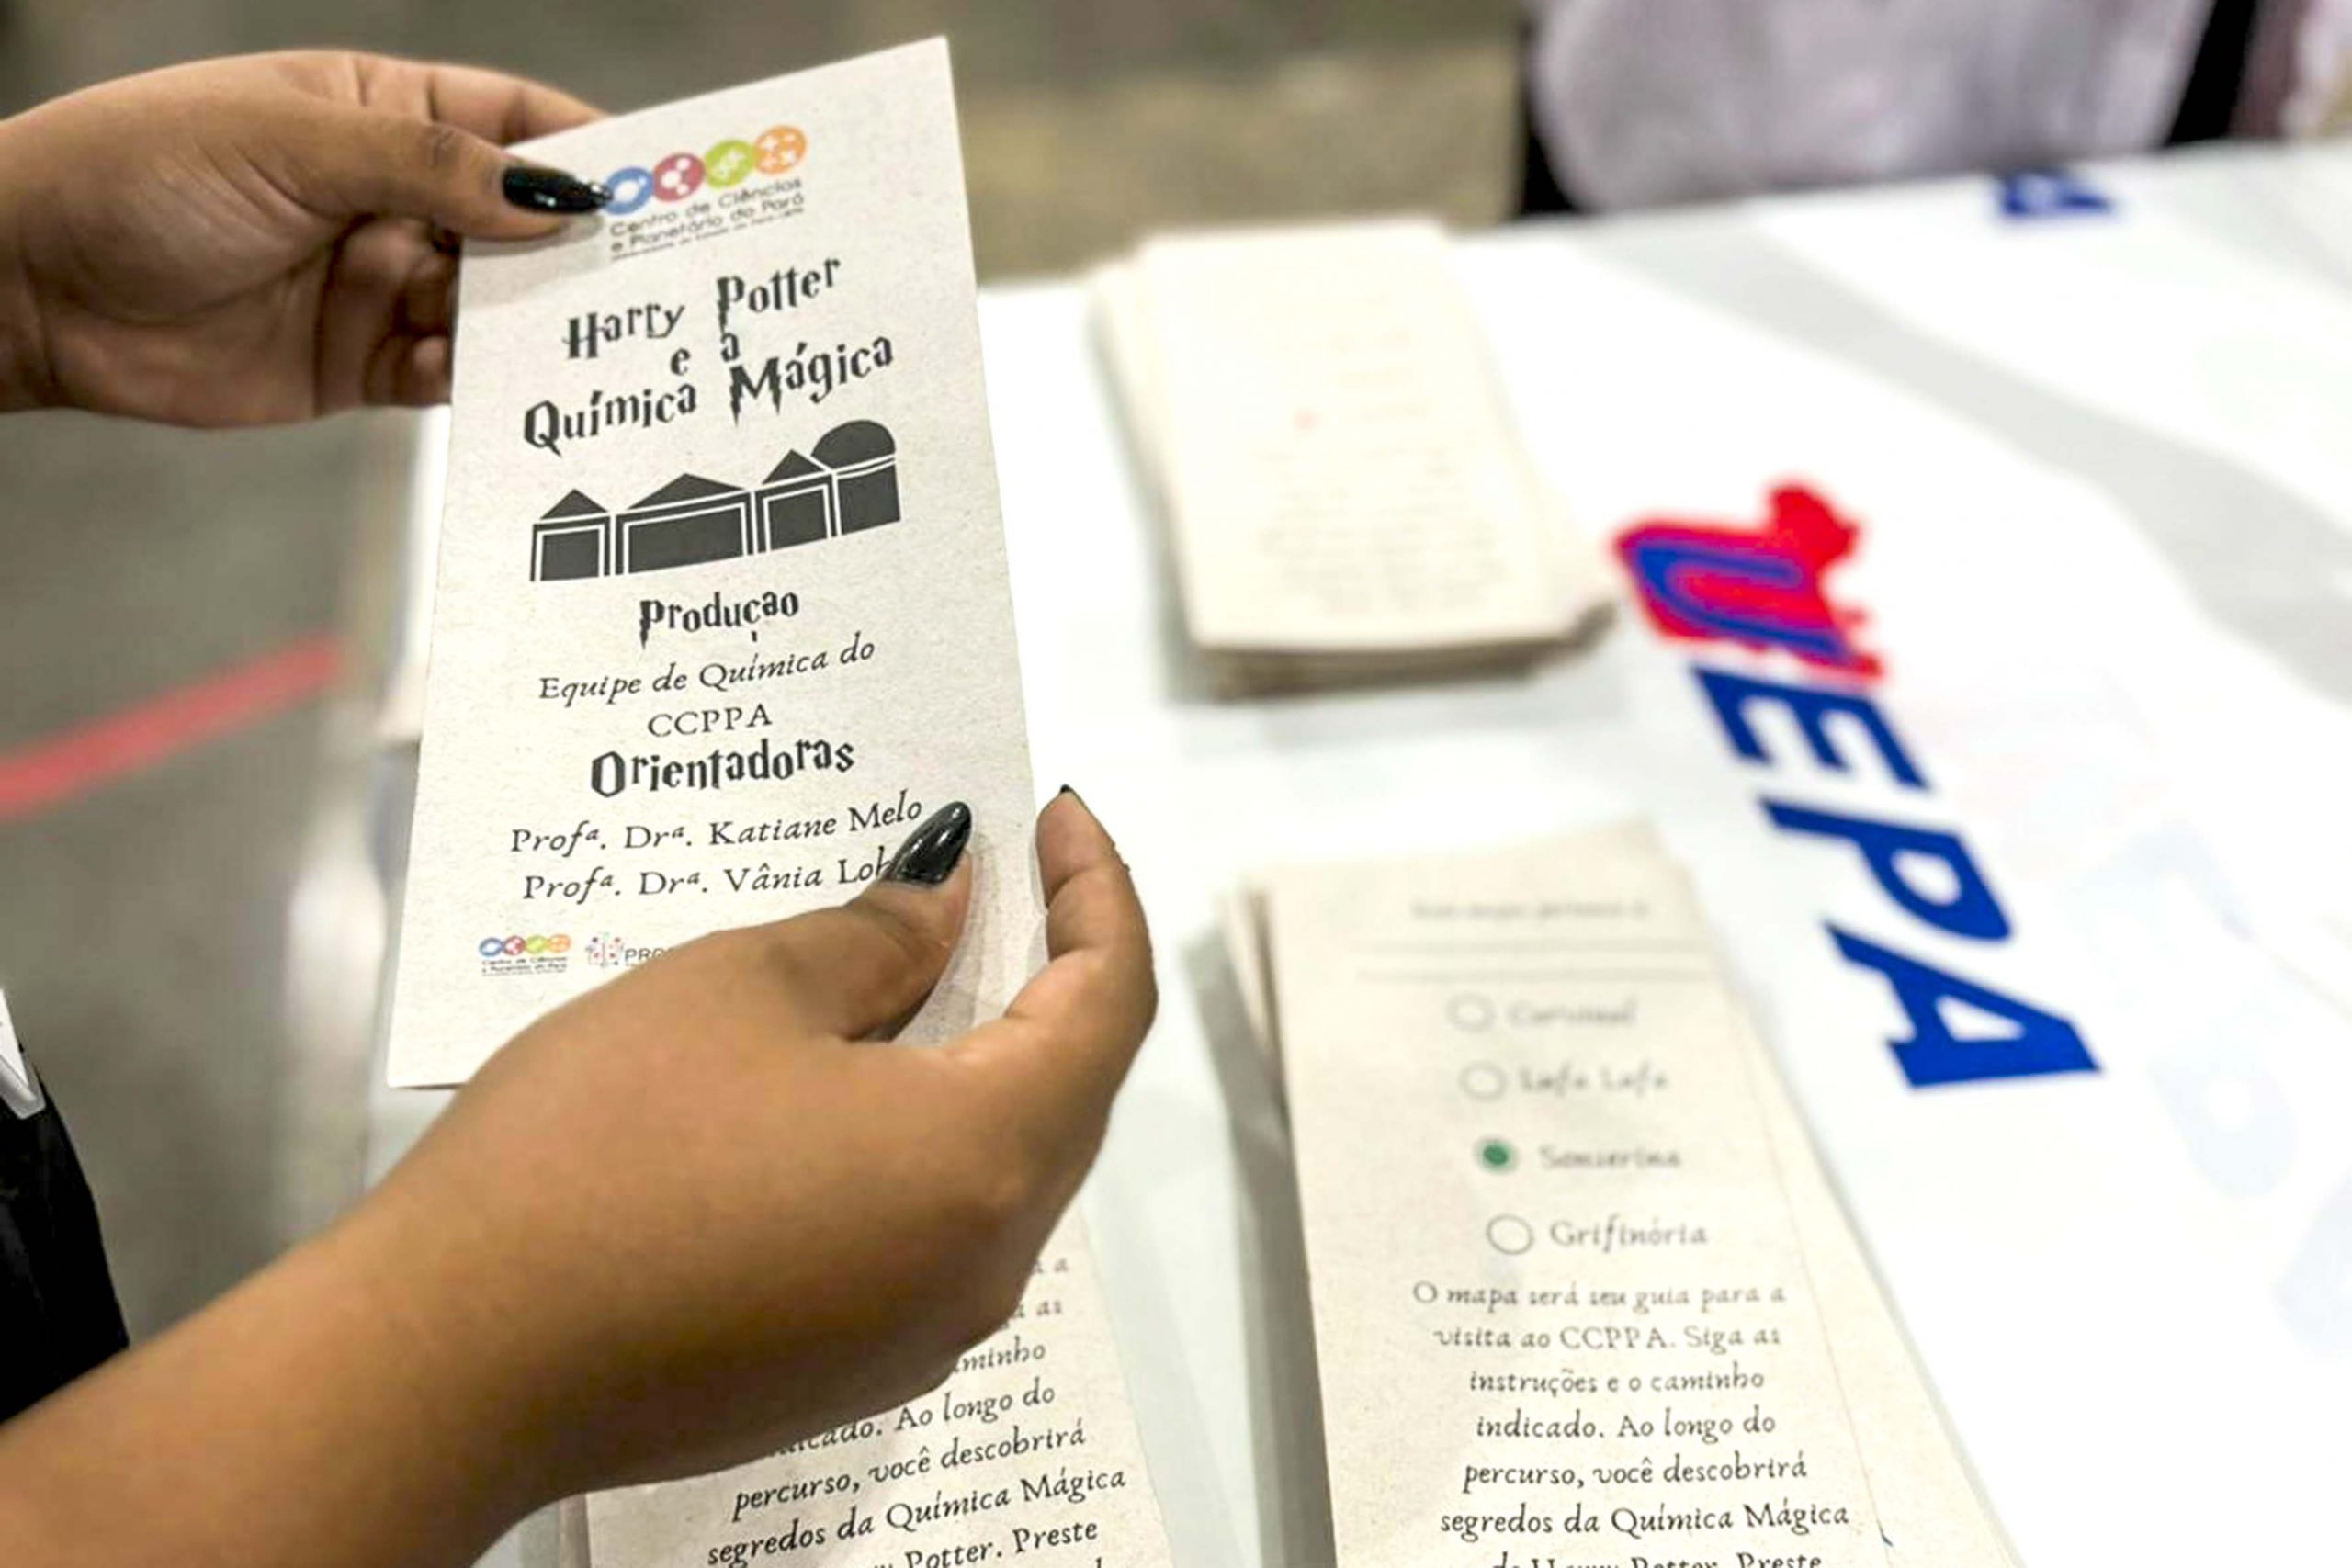 Centro de Ciências
e Planetário do Pará
Harry Potter
e a
Química Mágica
Produçao
Equipe de Química do
CCPPA
Orientadoras
Profª. Drª. Katiane Melo
Profª. Drª. Vânia
UEPA
Corvinal
Lufa Lufa
Sonserina
Grifinória
O mapa será seu guia para a
visita ao CCPPA. Siga as
instruções e o caminho
indicado. Ao longo do
percurso, você descobrirá
segredos da Química Mágica
Harry Potter. Preste
a
as
Ao longo do
percurso, você descobrirá
segredos da Química Mágica
Potter. Preste